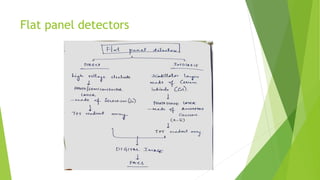 Flat panel detectors
Flat panel detectors
DIRECT
INDIRECT
high voltage electrode
Scintillator layer
made of Cesium
Iodide (CsI)
PHOTOSEMICONDUCTOR
LAYER
- made of Selenium (Se)
PHOTODIODE LAYER
- made of Amorphous
(a-Si)
TFT readout array
TFT readout array
DIGITAL IMAGE
PACS